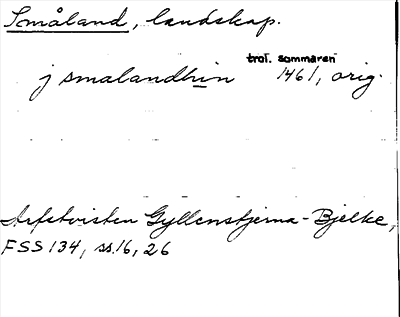 Småland, landskap.
trol. sommaren
j smalandhin 1461, orig.
Arfstvisten Gyllenstjerna-Bjelke,
FSS 134, ss. 16, 26